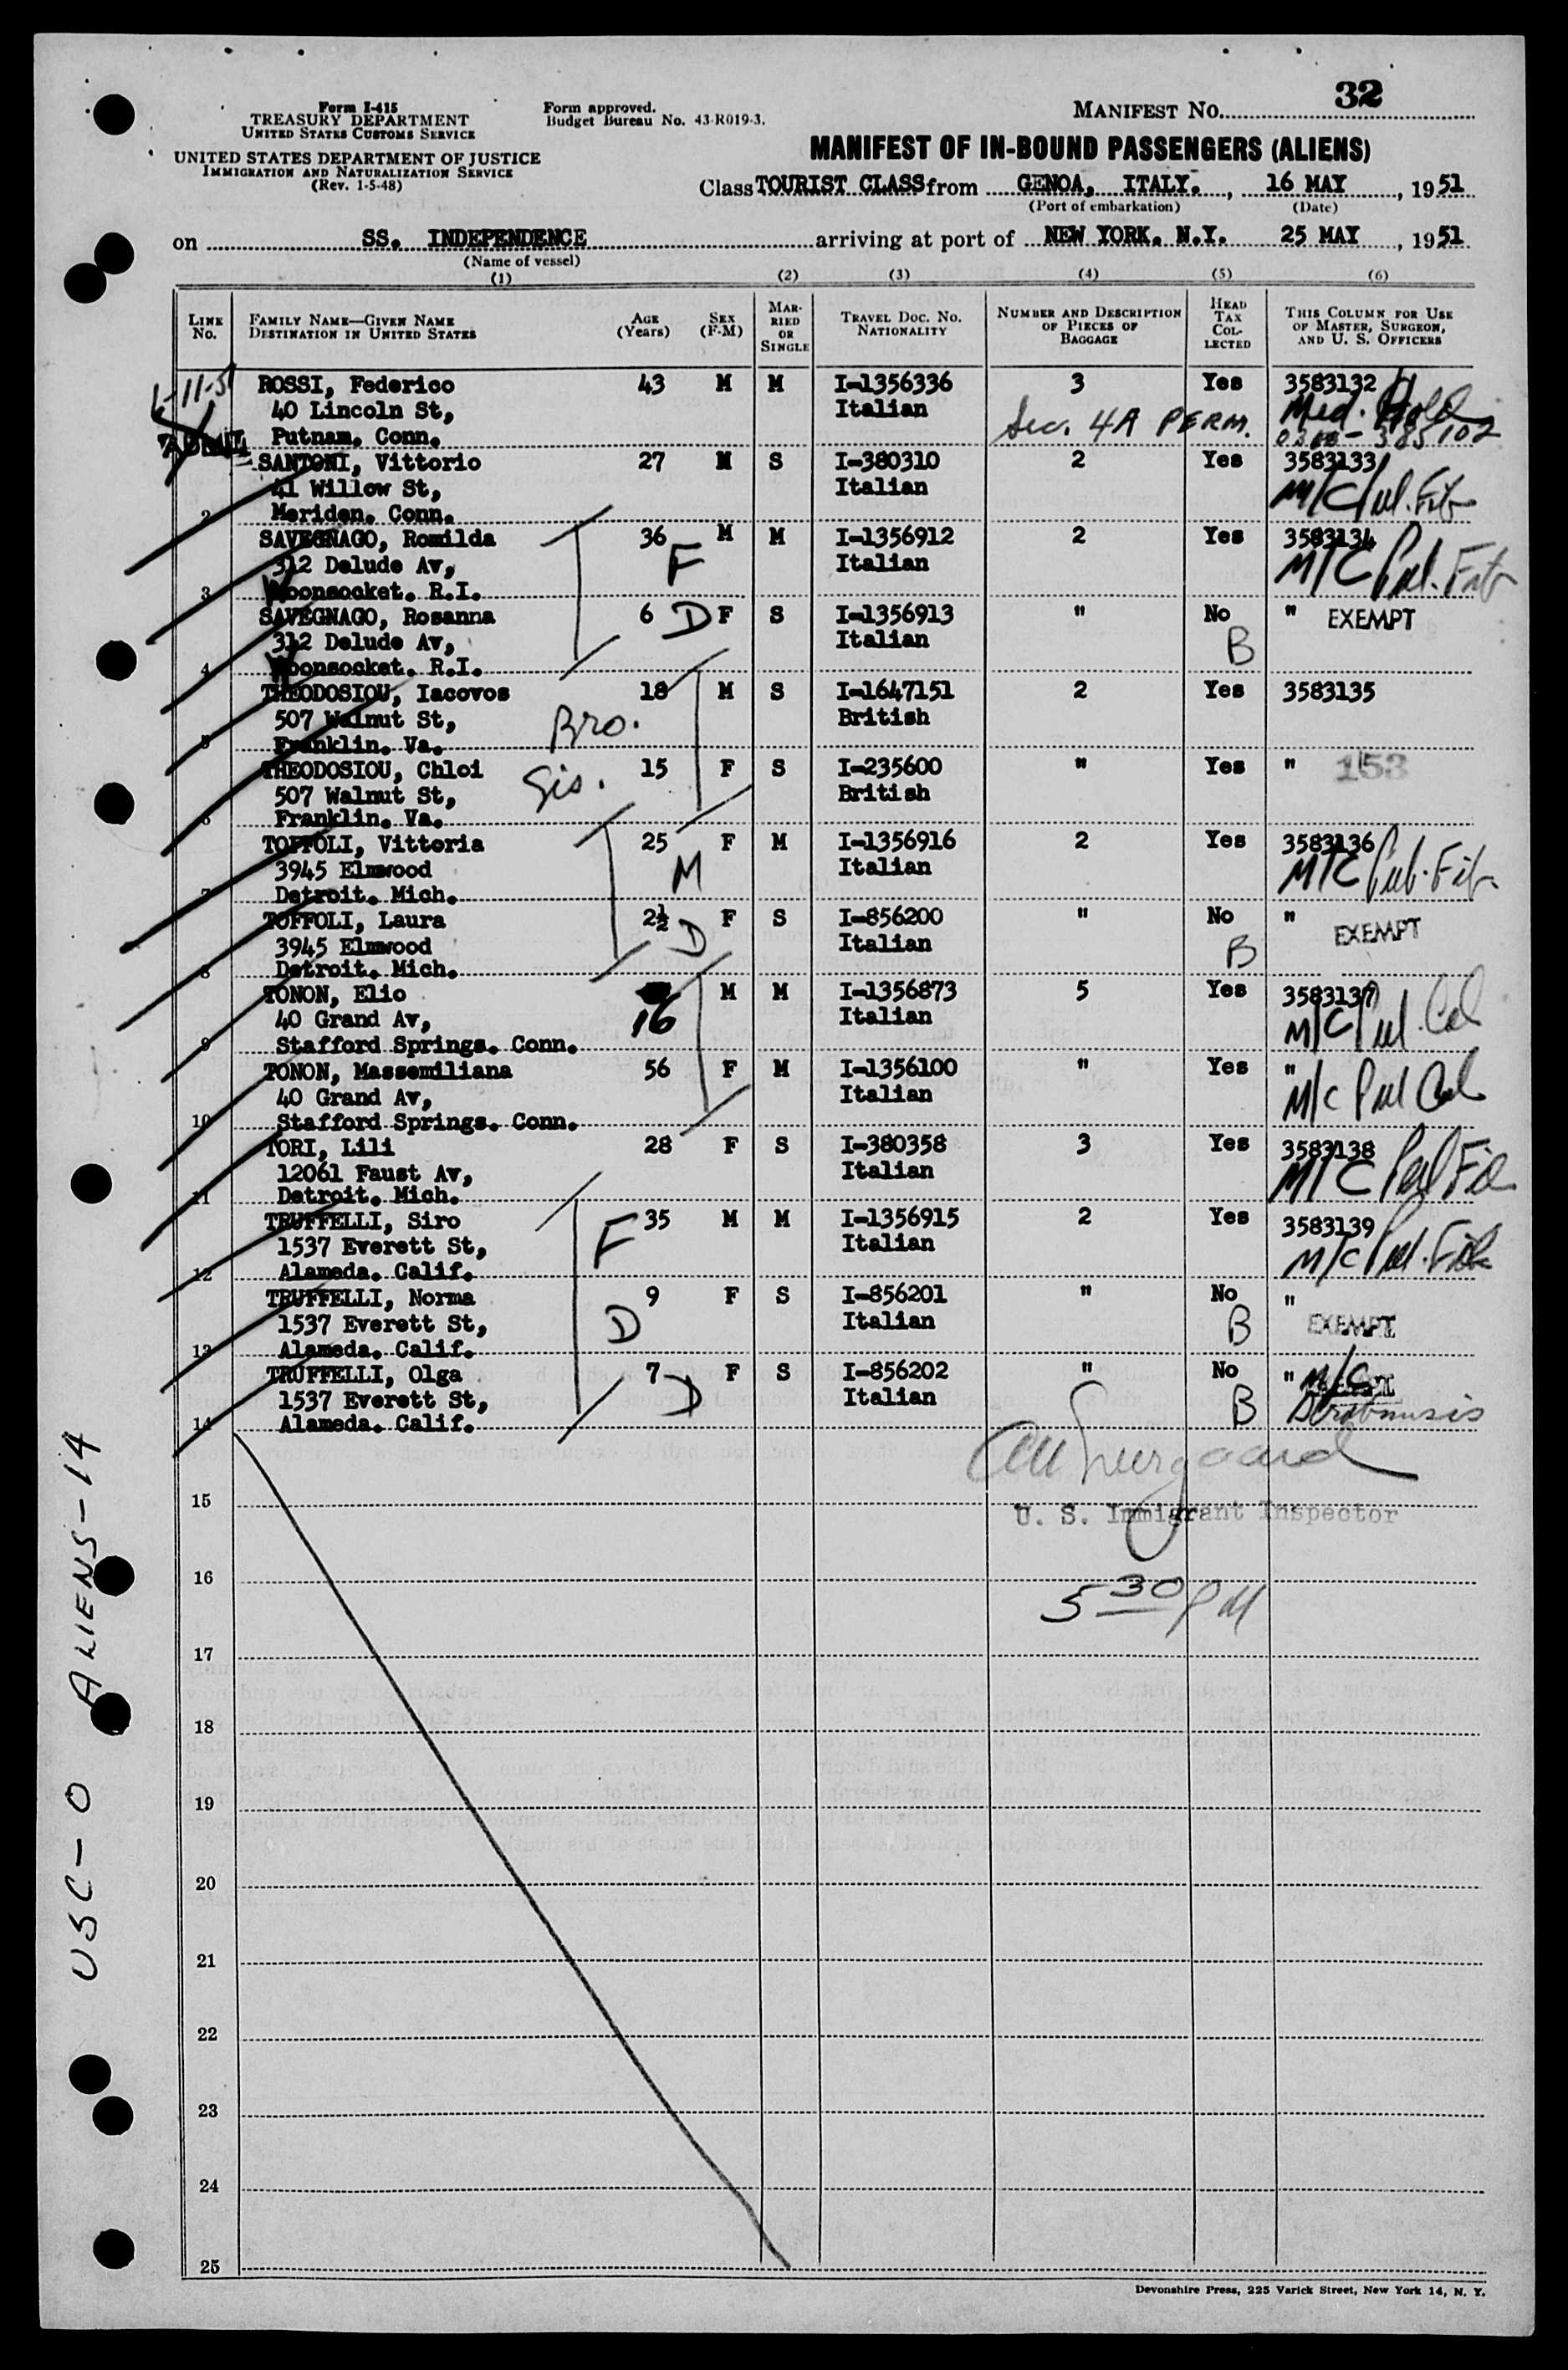 32
Form I-415
TREASURY DEPARTMENT
UNITED STATES CUSTOMS SERVICE
UNITED STATES DEPARTMENT OF JUSTICE
IMMIGRATION AND NATURALIZATION SERVICE
(Rev. 1-5-48)
Form approved.
Budget Bureau No. 43-R019-3.
MANIFEST NO.
MANIFEST OF IN-BOUND PASSENGERS (ALIENS)
Class TOURIST CLASS from GENOA, ITALY. , 16 MAY , 1951
(Port of embarkation) (Date)
on SS. INDEPENDENCE arriving at port of NEW YORK. N.Y. 25 MAY , 1951
(Name of vessel)
(1) (2) (3) (4) (5) (6)
LINE NO. FAMILY NAME—GIVEN NAME DESTINATION IN UNITED STATES AGE (Years) SEX (F-M) MARRIED OR SINGLE TRAVEL DOC. NO. NATIONALITY NUMBER AND DESCRIPTION OF PIECES OF BAGGAGE HEAD TAX COLLECTED THIS COLUMN FOR USE OF MASTER, SURGEON, AND U. S. OFFICERS
ROSSI, Federico 43 M M I-1356336 3 Yes 3583132
40 Lincoln St, Italian Sec. 4A PERM. Med. Hold
Putnam. Conn.
SANTONI, Vittorio 27 M S I-380310 2 Yes 3583133
41 Willow St, Italian M/C
2 Meriden. Conn.
SAVEGNAGO, Romilda 36 M M I-1356912 2 Yes 3583134
312 Delude Av, F Italian M/C
3 Woonsocket. R.I.
SAVEGNAGO, Rosanna 6 D F S I-1356913 " No " EXEMPT
312 Delude Av, Italian B
4 Woonsocket. R.I.
THEODOSIOU, Iacovos 18 M S I-1647151 2 Yes 3583135
507 Walnut St, Bro. British
5 Franklin. Va.
THEODOSIOU, Chloi Sis. 15 F S I-235600 " Yes " 153
507 Walnut St, British
6 Franklin. Va.
TOFFOLI, Vittoria 25 F M I-1356916 2 Yes 3583136
3945 Elmwood M Italian M/C
7 Detroit. Mich.
TOFFOLI, Laura 2½ F S I-856200 " No "
3945 Elmwood D Italian B EXEMPT
8 Detroit. Mich.
TONON, Elio M M I-1356873 5 Yes 3583137
40 Grand Av, 16 Italian M/C
9 Stafford Springs. Conn.
TONON, Massemiliana 56 F M I-1356100 " Yes "
40 Grand Av, Italian M/C
10 Stafford Springs. Conn.
TORI, Lili 28 F S I-380358 3 Yes 3583138
12061 Faust Av, Italian M/C
11 Detroit. Mich.
TRUFFELLI, Siro 35 M M I-1356915 2 Yes 3583139
1537 Everett St, F Italian M/C
12 Alameda. Calif.
TRUFFELLI, Norma 9 F S I-856201 " No "
1537 Everett St, D Italian B EXEMPT
13 Alameda. Calif.
TRUFFELLI, Olga 7 F S I-856202 " No " M/C
1537 Everett St, D Italian B
14 Alameda. Calif.
15
U. S. Immigrant Inspector
16
5 30 PM
17
18
19
20
21
22
23
24
25
USC-0 ALIENS-14
Devonshire Press, 225 Varick Street, New York 14, N. Y.